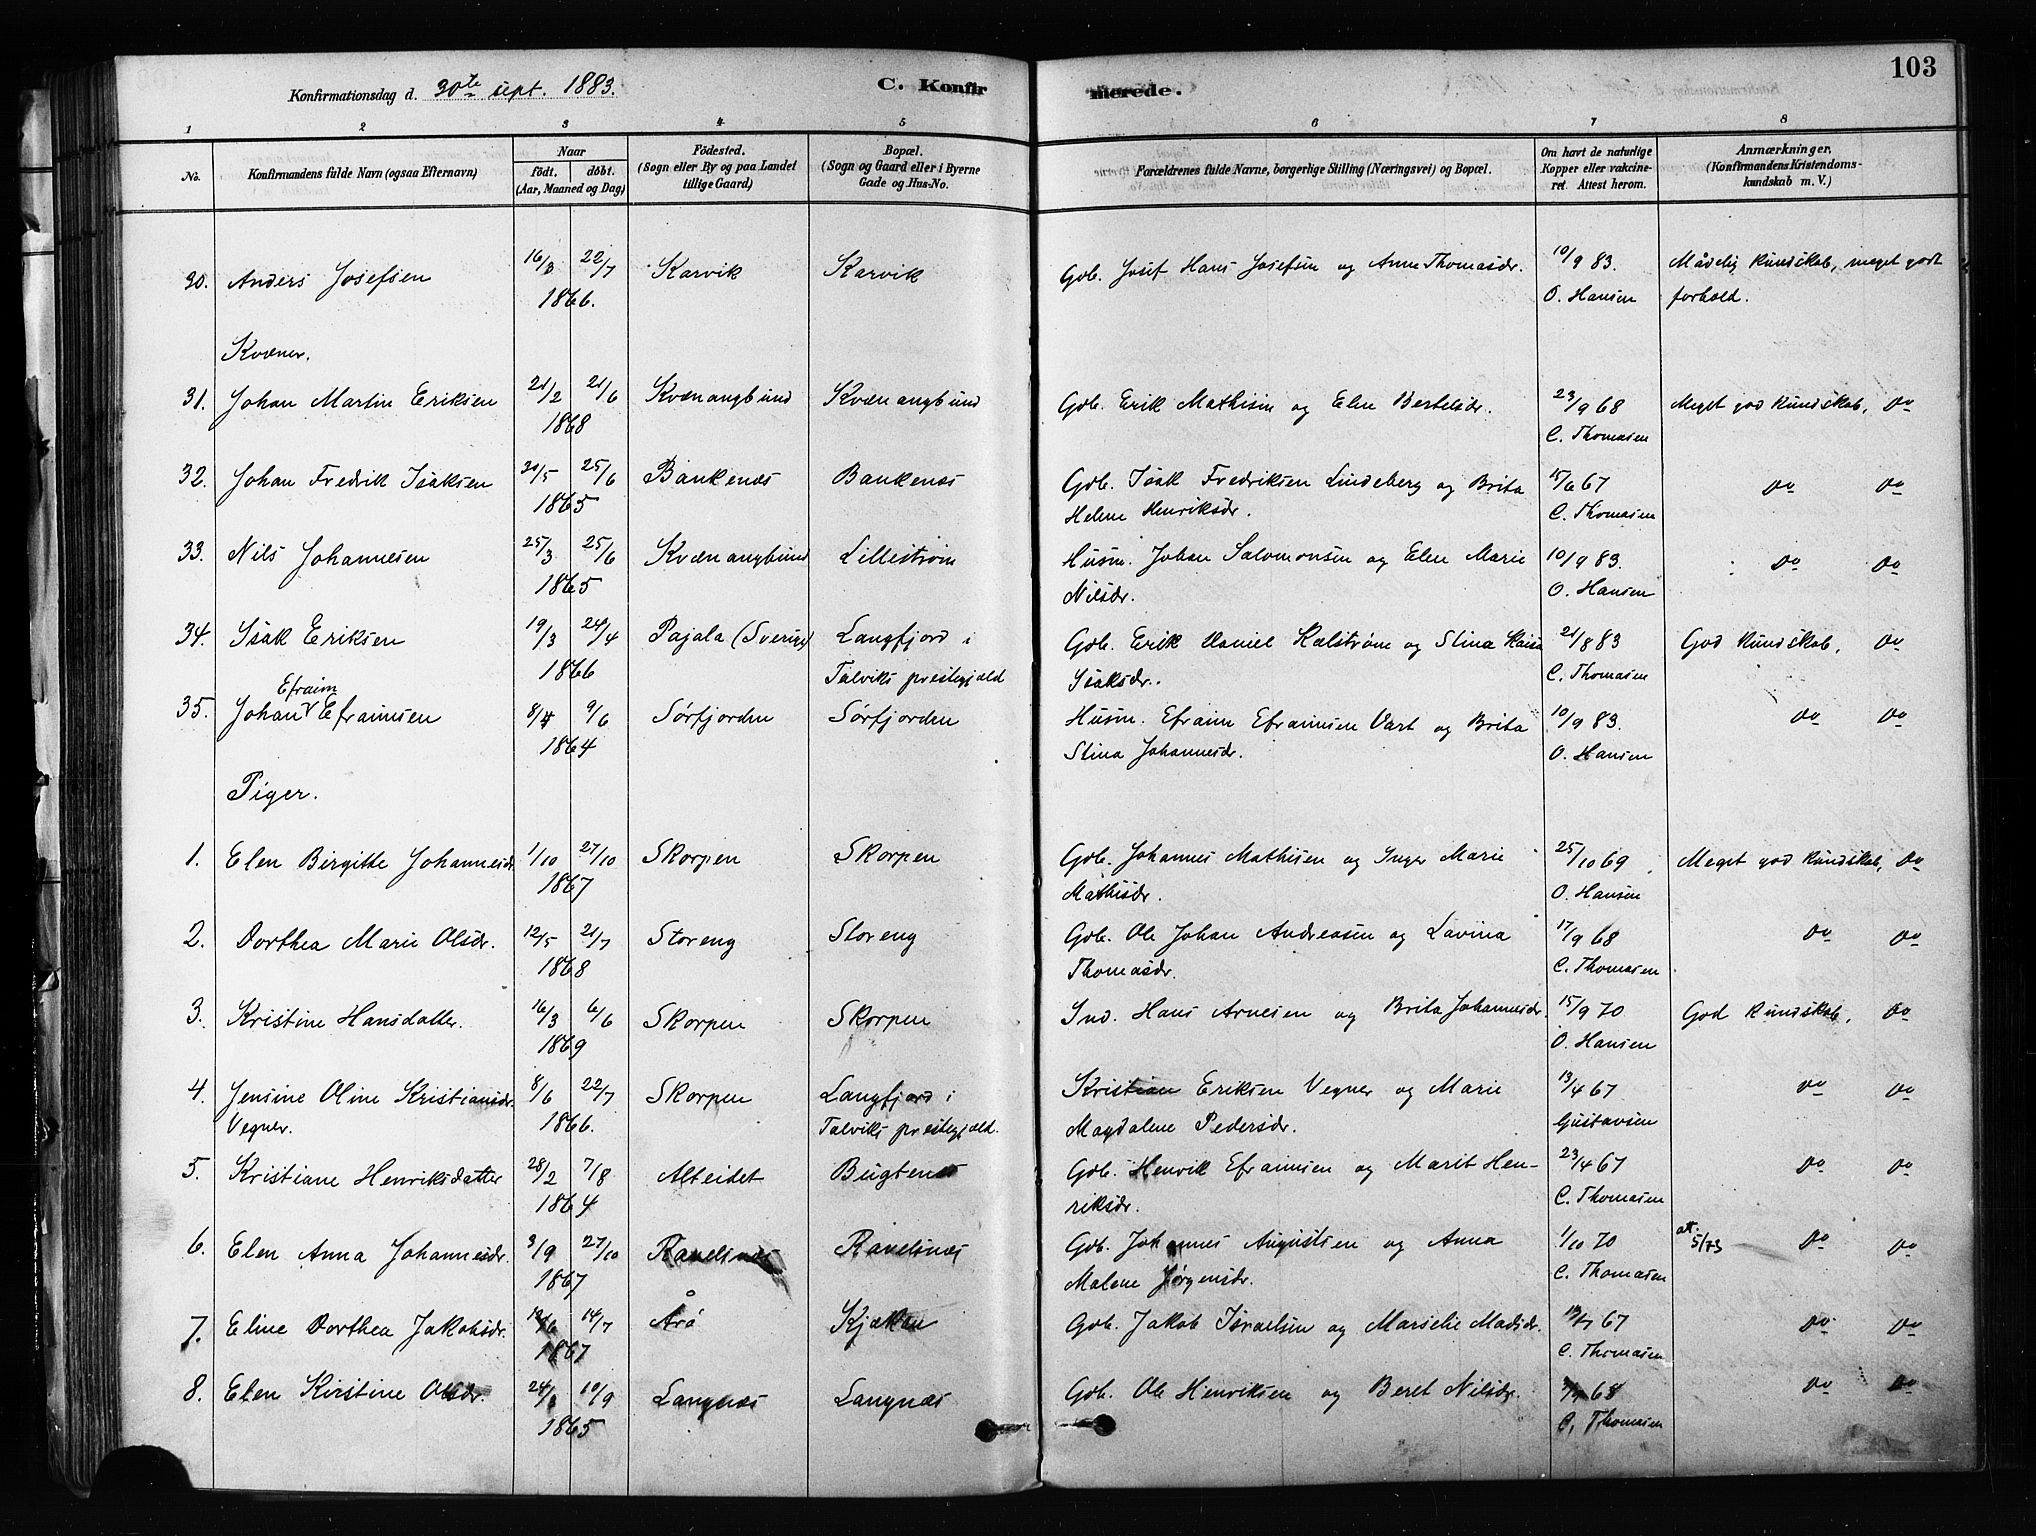 Konfirmationsdag d. 30te sept. 1883.
C. Konfirmerede.
103
1 2 3 4 5 6 7 8
No.
Konfirmandens fulde Navn (ogsaa Efternavn)
Naar
født. døbt.
(Aar, Maaned og Dag)
Födested.
(Sogn eller By og paa Landet
tillige Gaard)
Bopæl.
(Sogn og Gaard eller i Byerne
Gade og Hus-No.
Forældrenes fulde Navne, borgerlige Stilling (Næringsvei) og Bopæl.
Om havt de naturlige
Kopper eller vakcine-
ret. Attest herom.
Anmærkninger.
(Konfirmandens Kristendoms-
kundskab m. V.)
30. Anders Josefsen 16/3 22/7 Karvik Karvik Gdb. Josef Hans Josefsen og Anne Thomasdr. 10/9 83. Mådelig kundskab, meget godt
1866. O. Hansen forhold.
Kvæner.
31. Johan Martin Eriksen 21/2 21/6 Kvænangbund Kvænangbund Gdb. Erik Mathisen og Elen Bertelsdr. 23/9 68 Meget god kundskab, Do
1868 C. Thomasen
32. Johan Fredrik Isaksen 20/5 25/6 Bankenæs Bankenæs Gdb. Isak Fredriksen Lindeberg og Brita 15/6 67 Do Do
1865 Helene Henriksdr. C. Thomasen
33. Nils Johannesen 25/3 25/6 Kvænangbund Lillestrøm Husm. Johan Salomonsen og Elen Marie 10/9 83. Do Do
1865 Nilsdr. O. Hansen
34. Isak Eriksen 19/3 24/4 Pajala (Sverige) Langfjord i Gdb. Erik Daniel Kalstrøm og Stina Kaisa 21/8 83 God kundskab, Do
1866 Talviks prestegjæld Isaksdr. C. Thomasen
Efraim
35. Johan Efraimsen 8/4 9/6 Sørfjorden Sørfjorden Husm. Efraim Efraimsen Vart og Brita 10/9 83. Do Do
1864 Stina Johannesdr. O. Hansen
Piger.
1. Elen Birgitte Johannesdr. 1/10 27/10 Skorpen Skorpen Gdb. Johannes Mathisen og Inger Marie 25/10 69 Meget god kundskab, Do
1867 Mathisdr. O. Hansen
2. Dorthea Marie Olsdr. 12/5 21/7 Storeng Storeng Gdb. Ole Johan Andreasen og Lavina 17/9 68 Do Do
1868 Thomasdr. C. Thomasen
3. Kristine Hansdatter. 16/3 6/6 Skorpen Skorpen Ind. Hans Arnesen og Brita Johannesdr. 15/9 70 God kundskab, Do
1869 O. Hansen
4. Jensine Oline Kristiansdr. 8/6 22/7 Skorpen Langfjord i Kristian Eriksen Vegner og Marie 13/4 67 Do Do
Vegner. 1866. Talviks prestegjæld. Magdalene Pedersdr. Gustavsen
5. Kristiane Henriksdatter 28/2 7/8 Alteidet Bugtenes Gdb. Henrik Efraimsen og Marit Hen- 23/4 67 Do Do
1864 riksdr. C. Thomasen
6. Elen Anna Johannesdr. 3/9 27/10 Ravelsnæs Ravelsnæs Gdb. Johannes Augustsen og Anna 1/10 70 at. 5/73 Do Do
1867 Malene Jørgensdr. C. Thomasen
7. Eline Dorthea Jakobsdr. 14/7 Årø Kjækan Gdb. Jakob Israelsen og Marselie Madsdr. 67 Do Do
1867 C. Thomasen
8. Elen Kirstine Olsdr. 10/9 Langnæs Langnæs Gdb. Ole Henriksen og Beret Nilsdr. 68 Do Do
1865 C. Thomasen